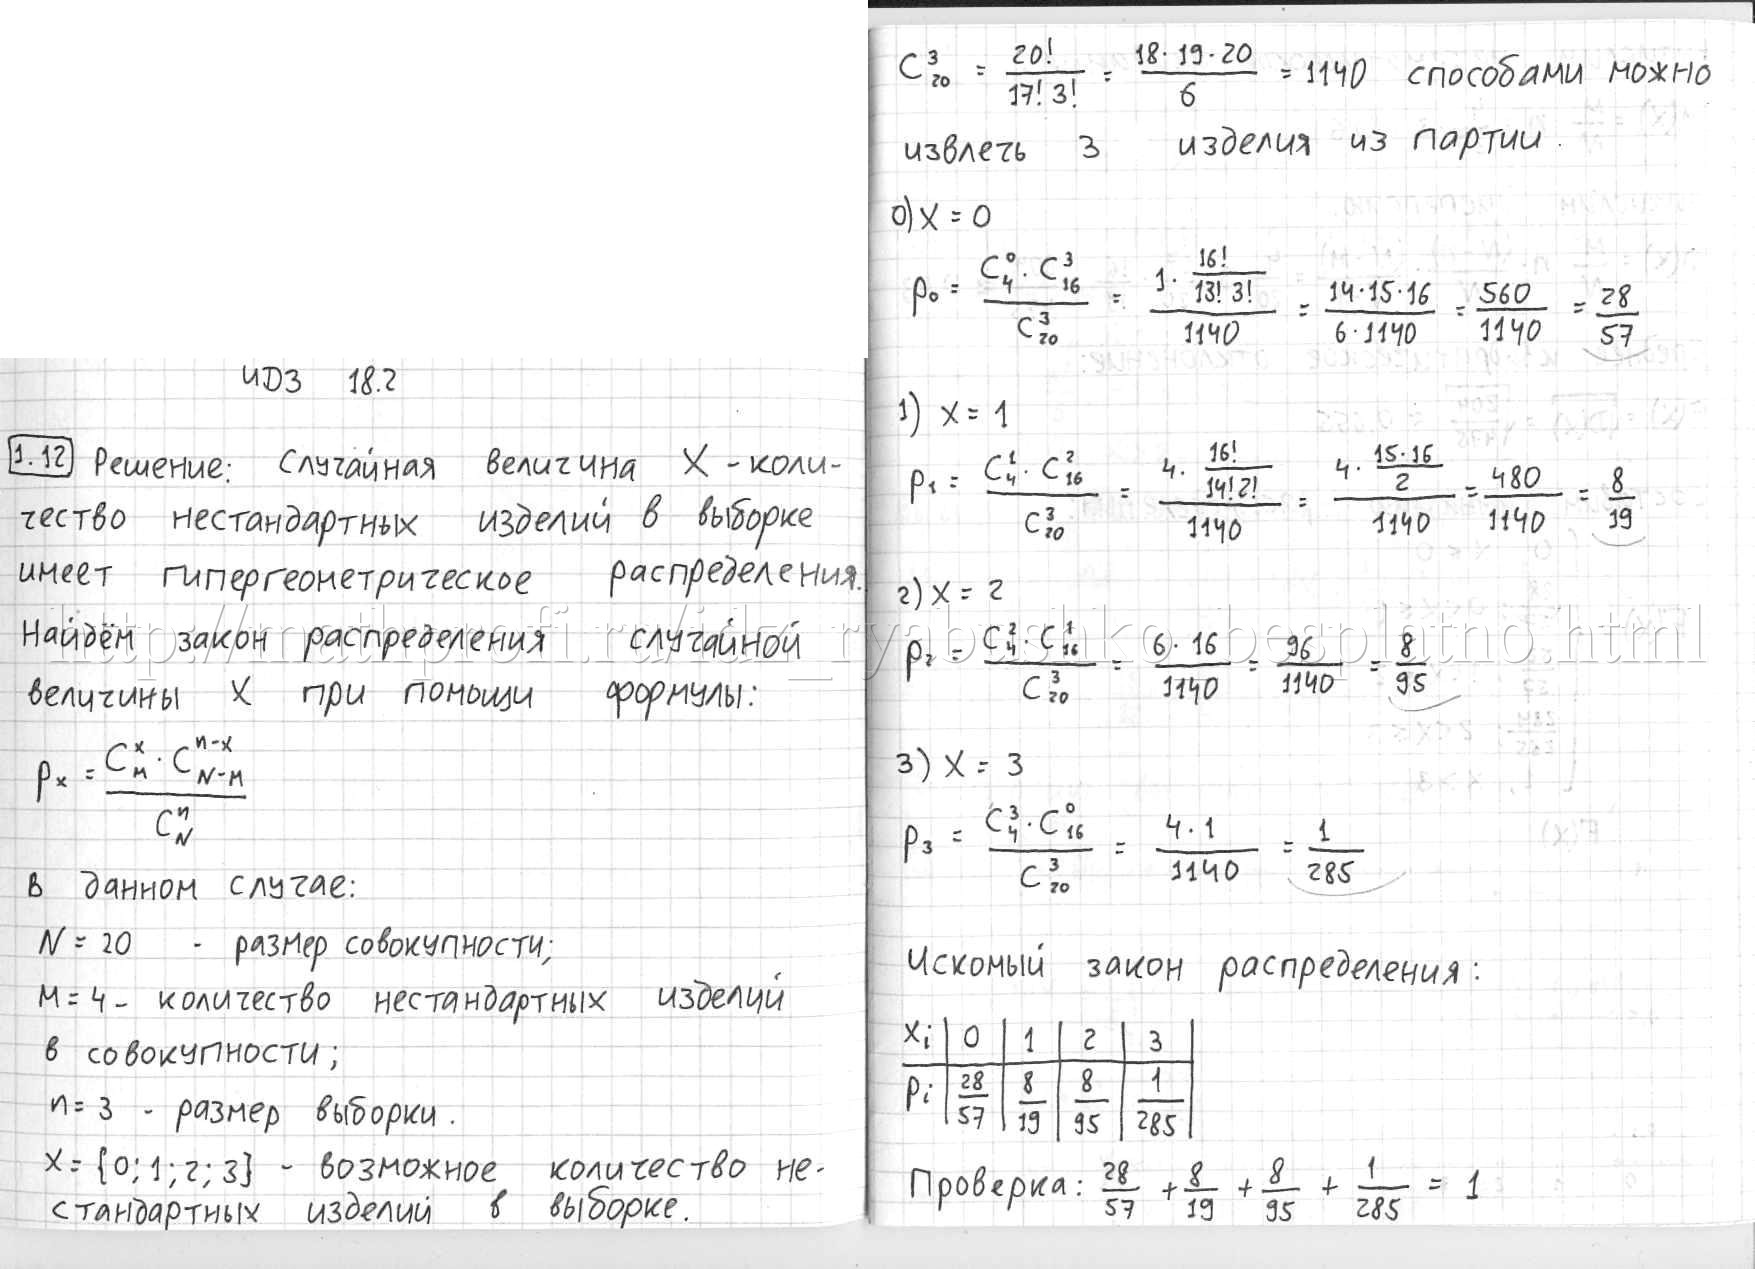 ИДЗ 18.2
1.12 Решение: Случайная величина X - коли-
чество нестандартных изделий в выборке
имеет гипергеометрическое распределения.
Найдём закон распределения случайной
величины X при помощи формулы:
pₓ = (C_M^x · C_{N-M}^{n-x}) / C_N^n
В данном случае:
N = 20 - размер совокупности;
M = 4 - количество нестандартных изделий
в совокупности;
n = 3 - размер выборки.
x = {0; 1; 2; 3} - возможное количество не-
стандартных изделий в выборке.
C_20^3 = 20! / (17! 3!) = (18 · 19 · 20) / 6 = 1140 способами можно
извлечь 3 изделия из партии.
0) X = 0
p₀ = (C_4^0 · C_16^3) / C_20^3 = (1 · 16! / (13! 3!)) / 1140 = (14 · 15 · 16) / (6 · 1140) = 560/1140 = 28/57
1) X = 1
p₁ = (C_4^1 · C_16^2) / C_20^3 = (4 · 16! / (14! 2!)) / 1140 = (4 · (15 · 16) / 2) / 1140 = 480/1140 = 8/19
2) X = 2
p₂ = (C_4^2 · C_16^1) / C_20^3 = (6 · 16) / 1140 = 96/1140 = 8/95
http://mathprofi.ru/idz_ryabushko_besplatno.html
3) X = 3
p₃ = (C_4^3 · C_16^0) / C_20^3 = (4 · 1) / 1140 = 1/285
Искомый закон распределения:
xᵢ | 0 | 1 | 2 | 3 |
pᵢ | 28/57 | 8/19 | 8/95 | 1/285 |
Проверка: 28/57 + 8/19 + 8/95 + 1/285 = 1